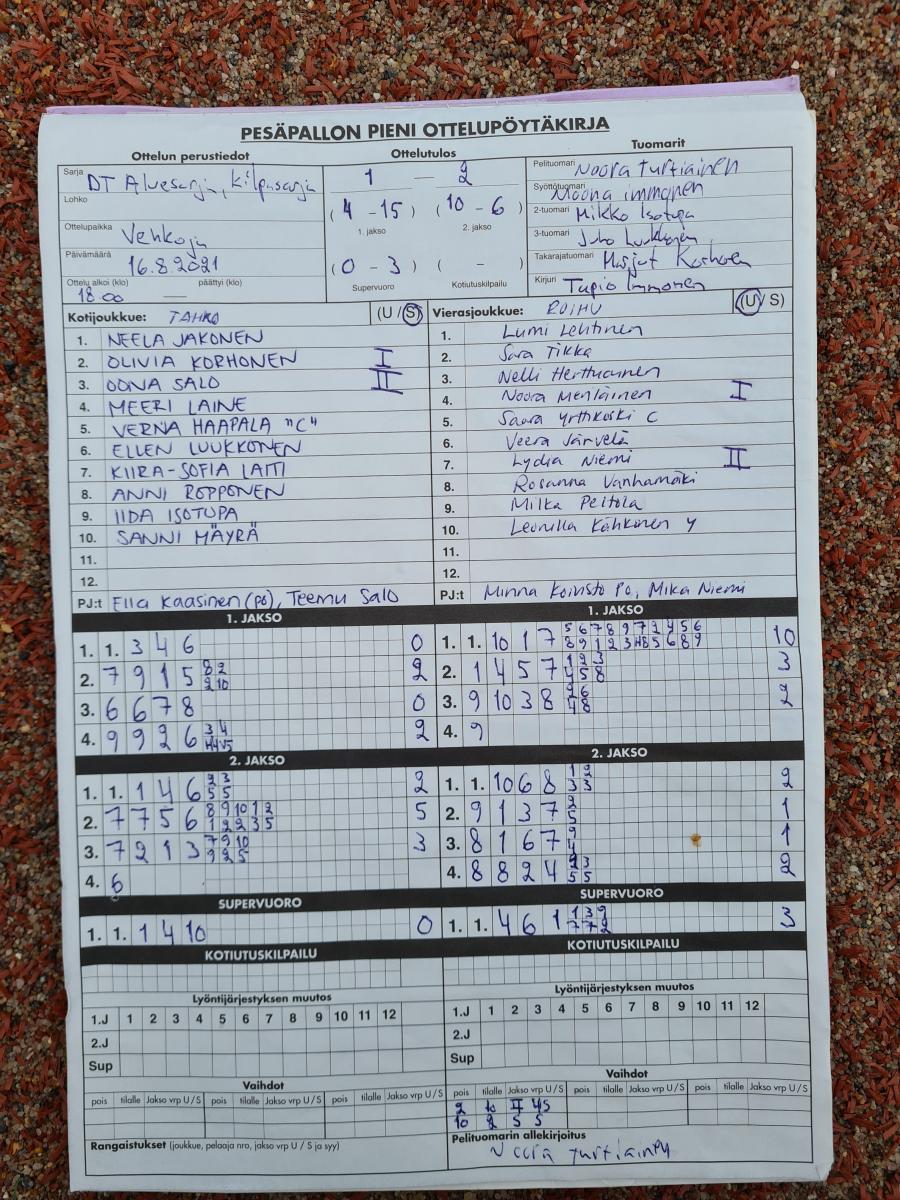 PESÄPALLON PIENI OTTELUPÖYTÄKIRJA
Ottelun perustiedot
Sarja DT Aluesarja, kilpasarja
Lohko
Ottelupaikka Vehkoja
Päivämäärä 16.8.2021
Ottelu alkoi (klo) päättyi (klo)
18.00 —
Ottelutulos
1 — 2
(4 - 15) (10 - 6)
1. jakso 2. jakso
(0 - 3) ( - )
Supervuoro Kotiutuskilpailu
Tuomarit
Pelituomari Noora Turtiainen
Syöttötuomari Noona immonen
2-tuomari Mikko Isotupa
3-tuomari Juho
Takarajatuomari Marjut Korhonen
Kirjuri Tapio Immonen
Kotijoukkue: TAHKO (U / S)
1. NEELA JAKONEN
2. OLIVIA KORHONEN I
3. OONA SALO II
4. MEERI LAINE
5. VERNA HAAPALA "C"
6. ELLEN LUUKKONEN
7. KIIRA-SOFIA LAITI
8. ANNI ROPPONEN
9. IIDA ISOTUPA
10. SANNI MÄYRÄ
11.
12.
PJ:t Ella Kaasinen (pö), Teemu Salo
Vierasjoukkue: ROIHU (U / S)
1. Lumi Lehtinen
2. Sara Tikka
3. Nelli
4. Noora Meriläinen I
5. Saara Yrttikoski C
6. Veera Järvelä
7. Lydia Niemi II
8. Rosanna Vanhamäki
9. Milka Peltola
10. Leonilla Kähkönen Y
11.
12.
PJ:t Minna Koivisto Pö, Mika Niemi
1. JAKSO
1. 1. 3 4 6 0
2. 7 9 1 5 8 2 2
2 10
3. 6 6 7 8 0
4. 9 9 2 6 3 4 2
2. JAKSO
1. 1. 1 4 6 2 3 2
5 5
2. 7 7 5 6 8 9 10 1 2 5
1 2 2 3 5
3. 7 2 1 3 7 9 10 3
9 2 5
4. 6
SUPERVUORO
1. 1. 1 4 10 0
KOTIUTUSKILPAILU
Lyöntijärjestyksen muutos
1.J 1 2 3 4 5 6 7 8 9 10 11 12
2.J
Sup
Vaihdot
pois tilalle Jakso vrp U / S pois tilalle Jakso vrp U / S pois tilalle Jakso vrp U / S
Rangaistukset (joukkue, pelaaja nro, jakso vrp U / S ja syy)
1. JAKSO
1. 1. 10 1 7 5 6 7 8 9 7 2 4 5 6 10
8 9 1 2 3 5 6 8 9
2. 1 4 5 7 1 2 3 3
4 5 8
3. 9 10 3 8 2 6 2
4 8
4. 9
2. JAKSO
1. 1. 10 6 8 1 2 2
3 3
2. 9 1 3 7 2 1
5
3. 8 1 6 7 9 1
4
4. 8 8 2 4 3 2
5 5
SUPERVUORO
1. 1. 4 6 1 1 3 9 3
7 7 2
KOTIUTUSKILPAILU
Lyöntijärjestyksen muutos
1.J 1 2 3 4 5 6 7 8 9 10 11 12
2.J
Sup
Vaihdot
pois tilalle Jakso vrp U / S pois tilalle Jakso vrp U / S pois tilalle Jakso vrp U / S
2 10 II 4/5
10 2 5 5
Pelituomarin allekirjoitus
Noora Turtiainen